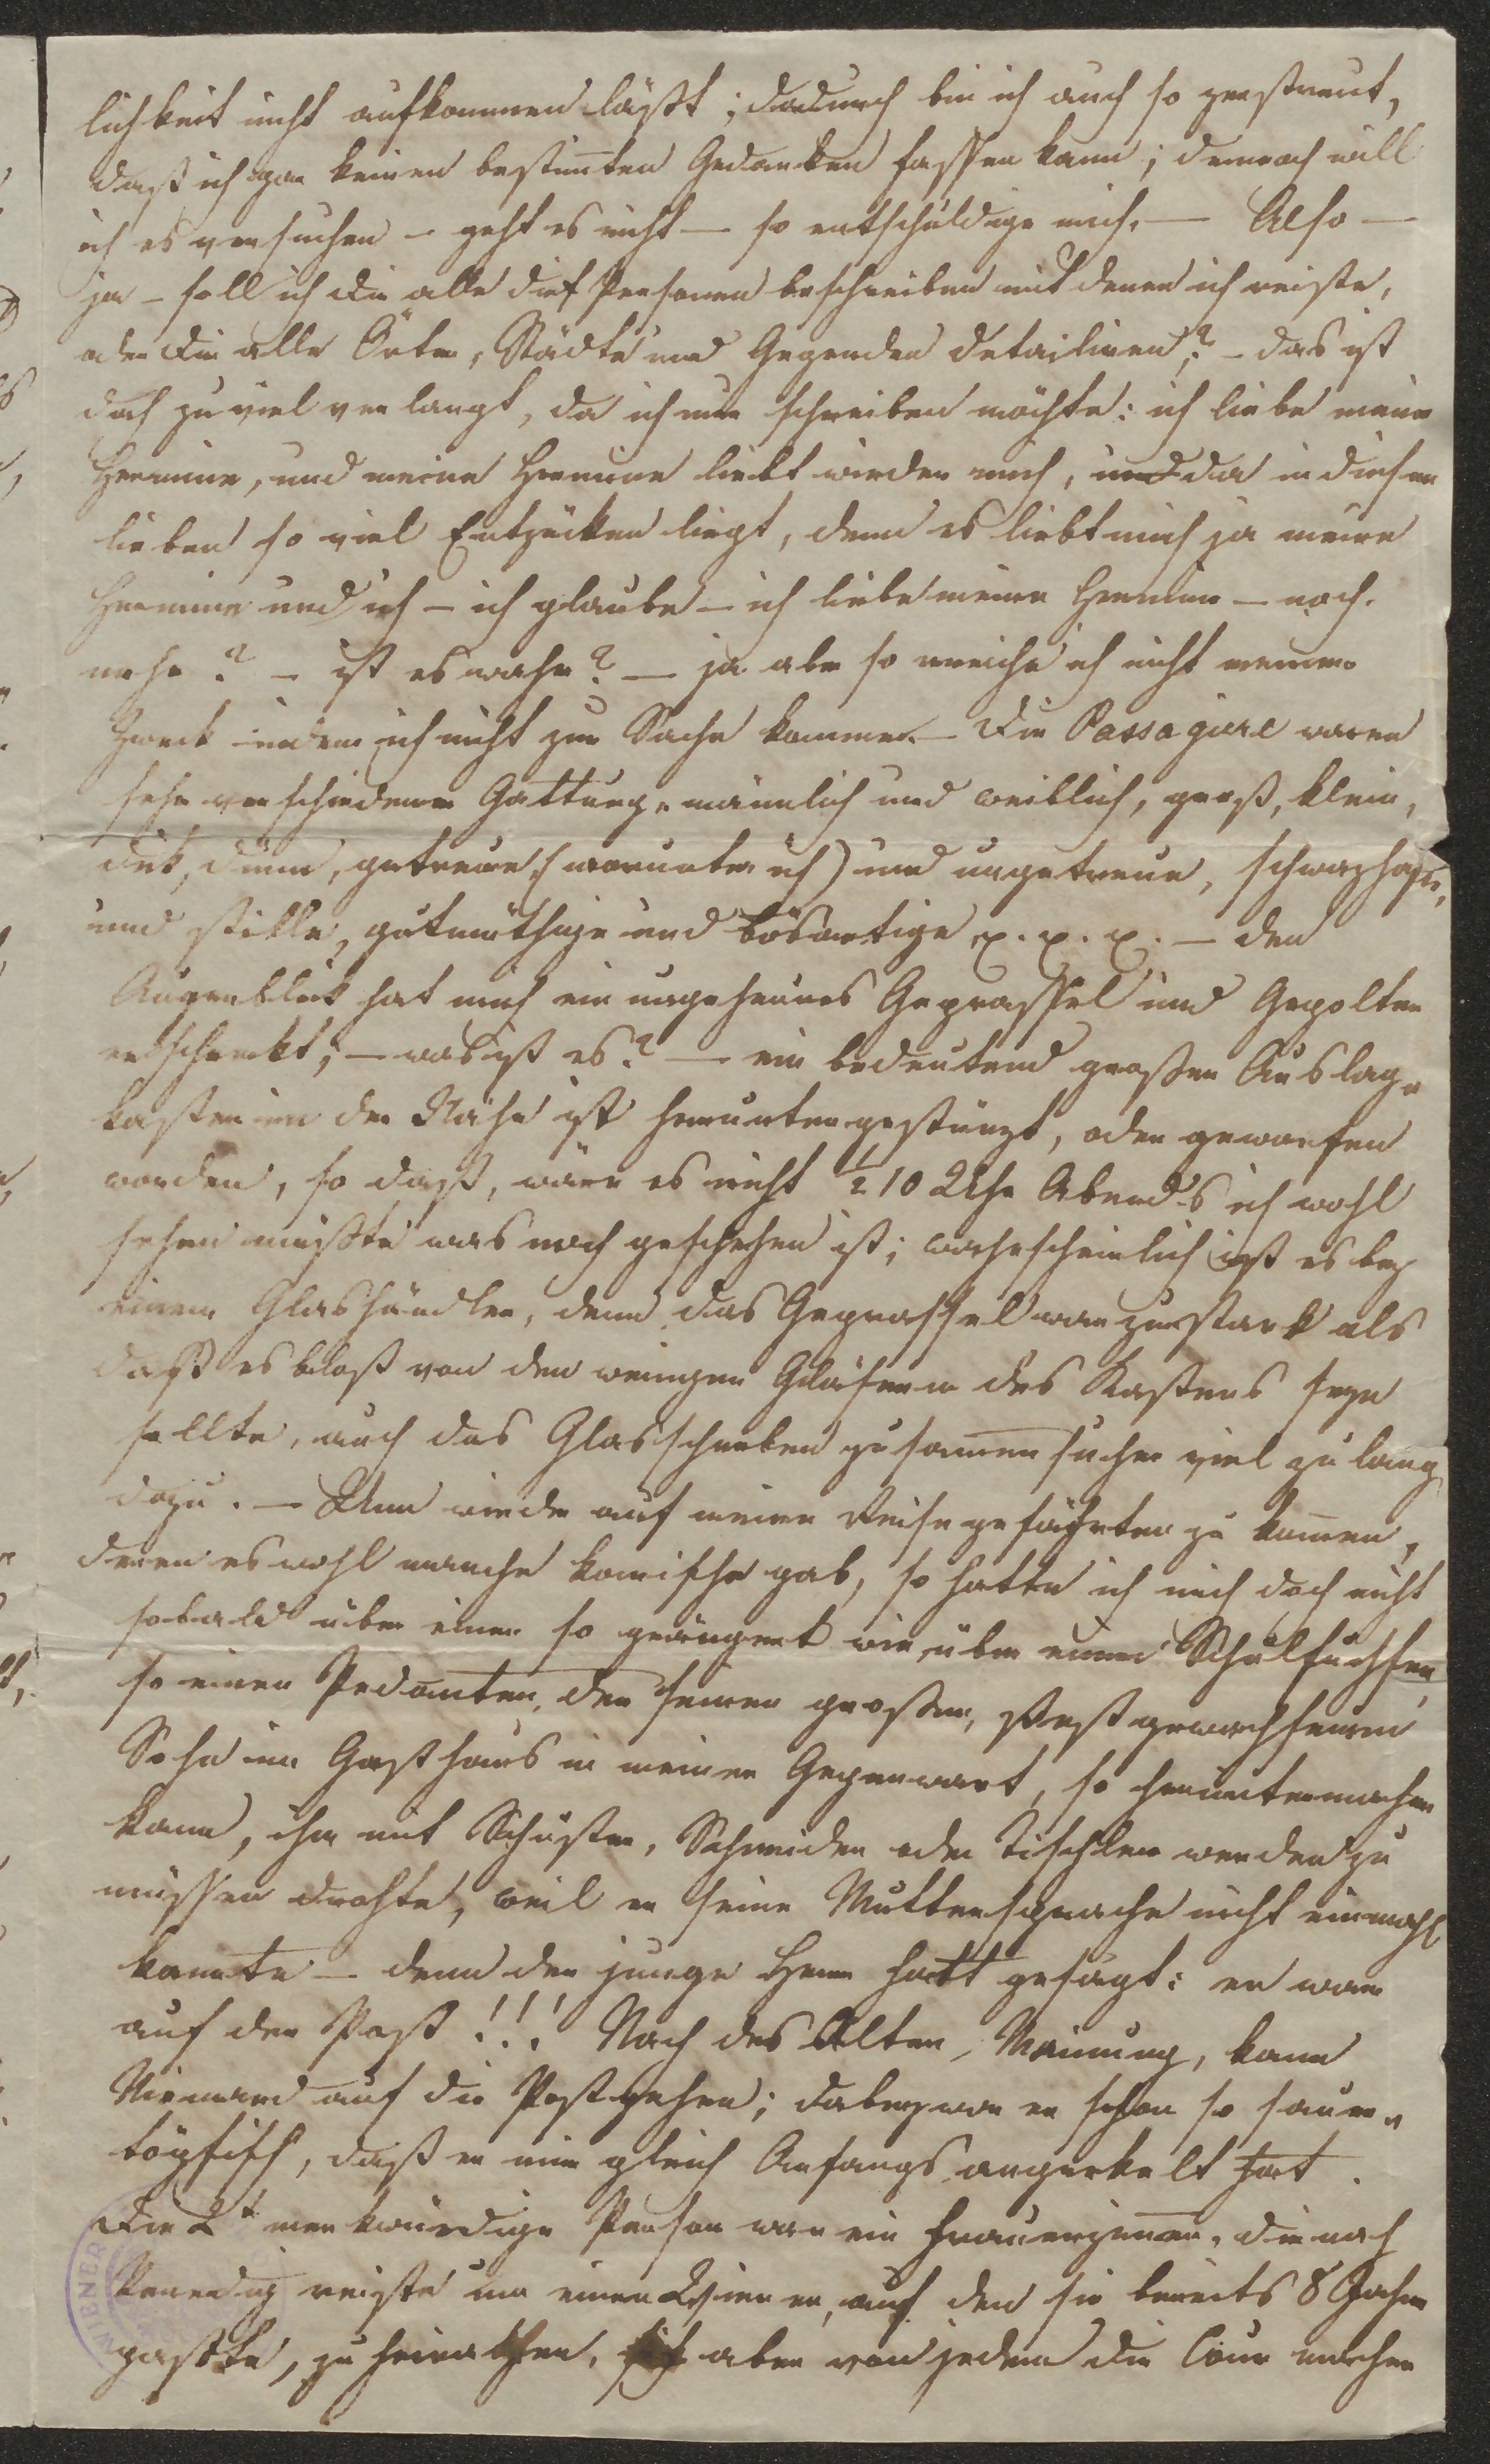 lichkeit nicht aufkommen läßt; dadurch bin ich auch so zerstreut,
daß ich gar keinen bestim̅ten Gedanken fassen kann; dennoch will
ich es versuchen – geht es nicht – so entschuldige mich. – Also –
ja – soll ich dir alle die Personen beschreiben mit denen ich reiste,
oder dir alle Örter, Städte und Gegenden detailiren? – das ist
doch zu viel verlangt, da ich nur schreiben möchte: ich liebe meine
Hermine, und meine Hermine liebt wieder mich, und da in diesem
lieben so viel Entzücken liegt, denn es liebt mich ja meine
Hermine und ich – ich glaube – ich liebe meine Hermine – noch
mehr? – ist es wahr? – ja aber so erreiche ich nicht meinen
Zweck indem ich nicht zur Sache komme. – Die Passagiere waren
sehr verschiedener Gattung, männlich und weiblich, groß, klein,
dick, dünn, getreue, (worunter ich) und ungetreue, schwazhafte,
und stille, gutmüthige und bösartige x. x. x. – den
Augenblick hat mich ein ungeheures Geprassel und Gepolter
erschreckt; – was ist es? – ein bedeutend großer Auslage
kasten in der Nähe ist heruntergestürzt, oder geworfen
worden, so daß, wäre es nicht ½ 10 Uhr Abends ich wohl
sehen müßte was noch geschehen ist; wahrscheinlich ist es bey
einem Glashändler, denn das Geprassel war zu stark als
daß es bloß von den wenigen Gläsern des Kastens seyn
sollte, auch das Glasscherben zusammensuchen viel zu lang
dazu. – Um wieder auf meine Reisegefährten zu kom̅en,
deren es wohl manche komische gab, so hatte ich mich doch nicht
sobald über einen so geärgert wie über einen Schulfuchsen,
so einen Pedanten, der seinen großen, gewachsenen
Sohn im Gasthaus in meiner Gegenwart, so heruntermachen
kann, ihm mit Schuster, Schneider oder Tischler werden zu
müssen drohte, weil er seine Muttersprache nicht einmahl
kannte – denn der junge Herr hatt gesagt: er war
auf der Post!!! Nach des Alten, Meinung, kann
Niemand auf die Post gehen; dabey war er schon so sauer-
töpfisch, daß er mir gleich Anfangs angeekelt hat.
Die 2t merkwürdige Person war ein Frauenzimmer, die nach
Venedig reiste um einen Wiener, auf den sie bereits 8 Jahre
paßte, zu heirathen, aber von jedem die Cour machen